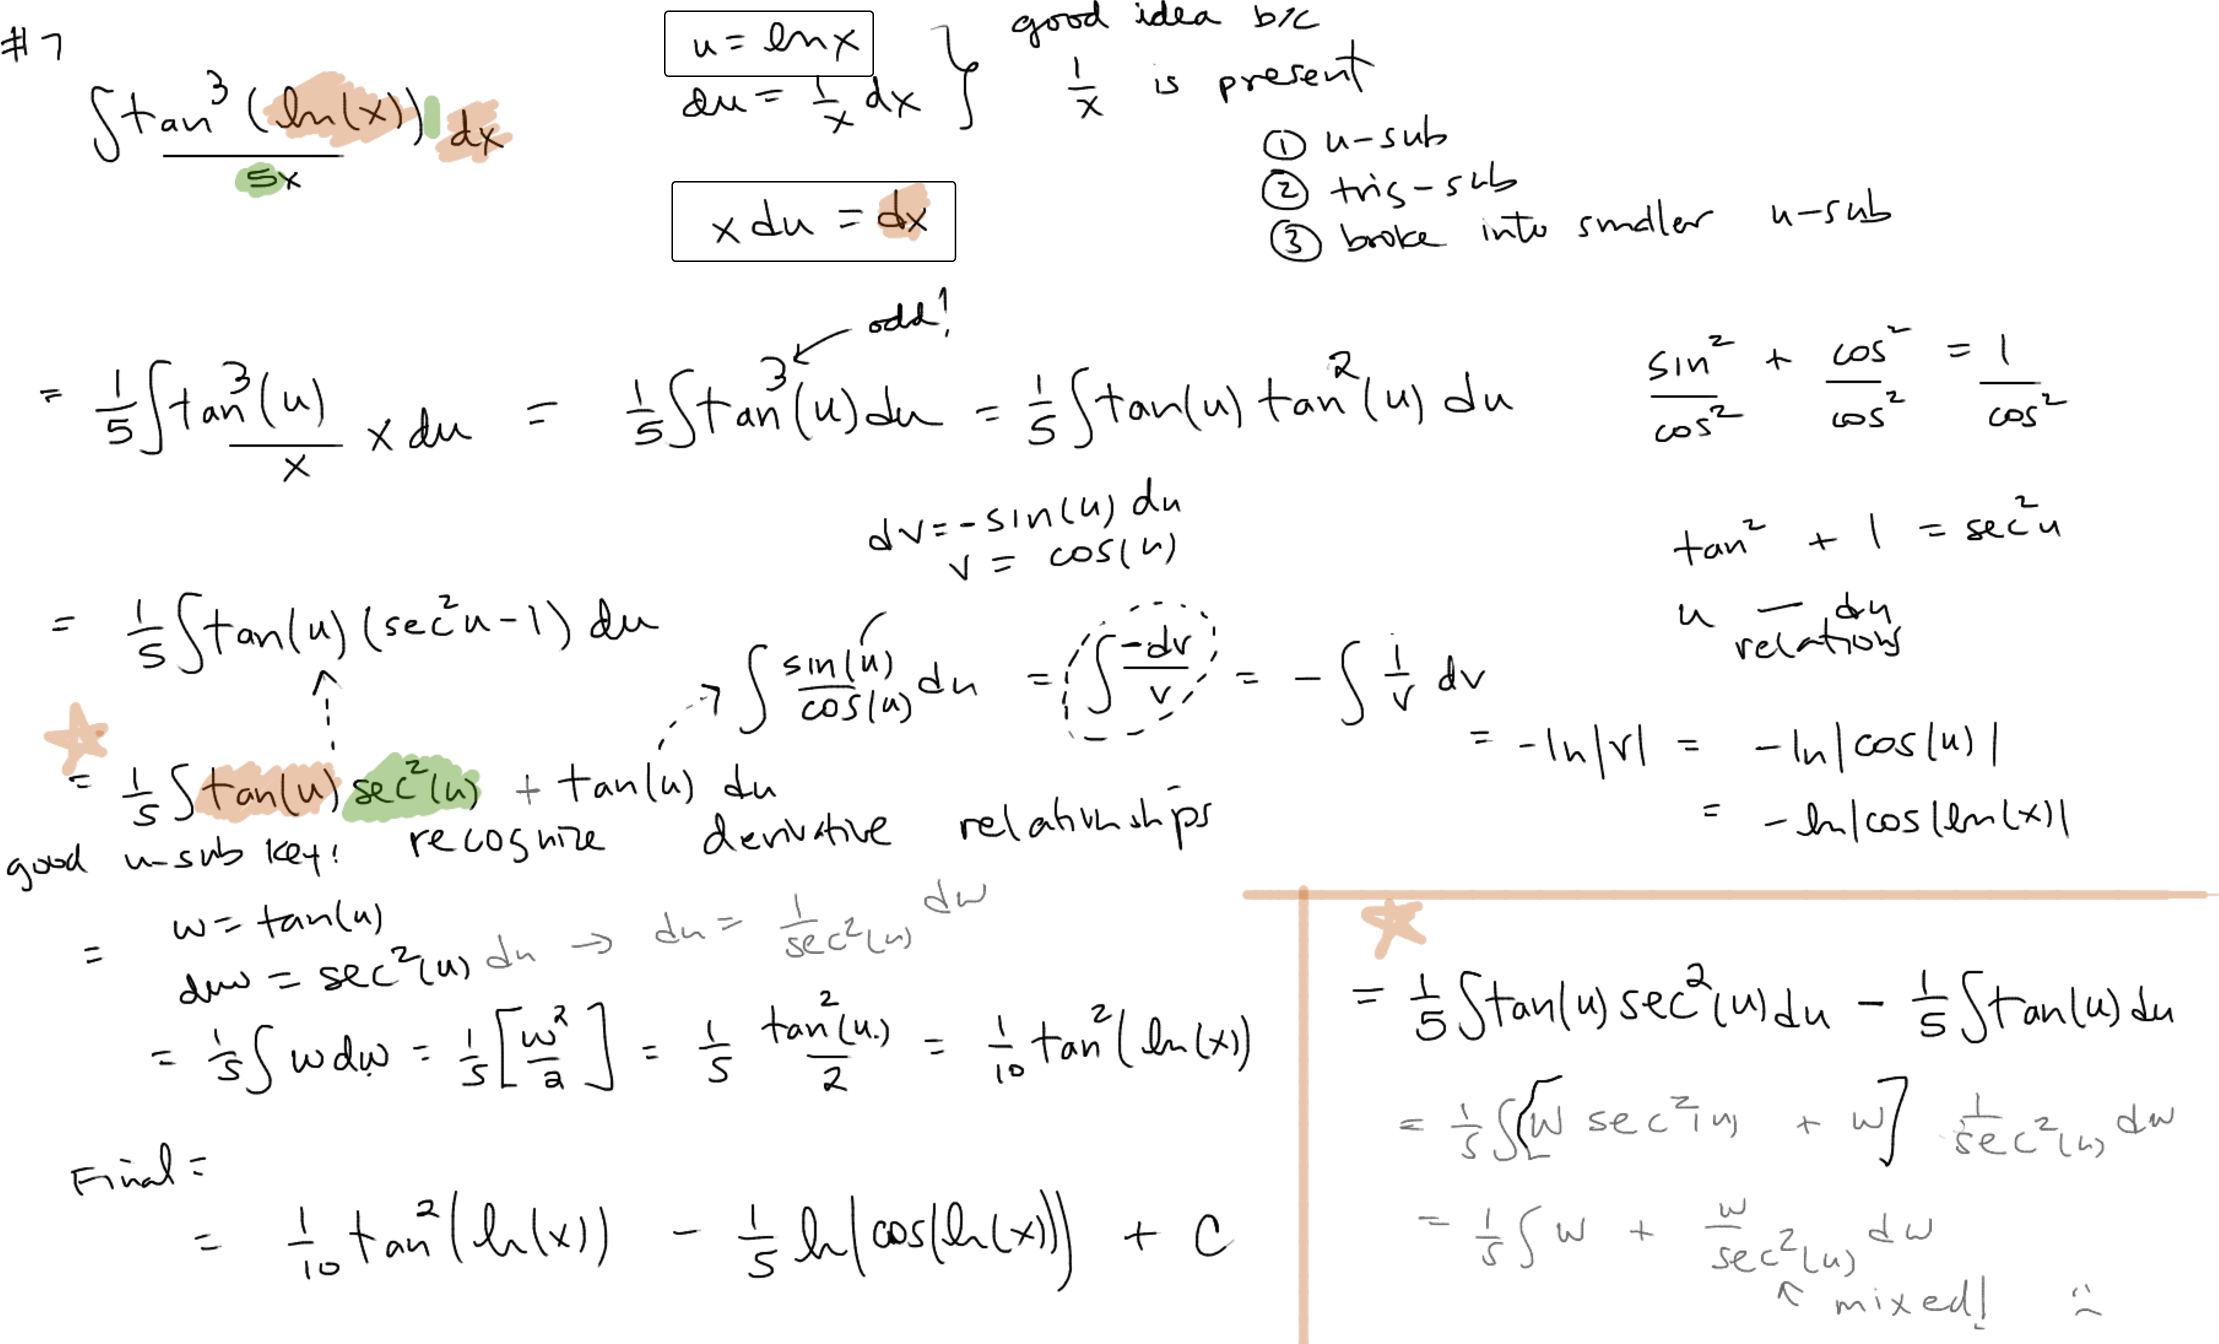 #7
∫ tan³(ln(x)) / 5x dx
u = lnx
du = 1/x dx } good idea b/c 1/x is present
x du = dx
① u-sub
② trig-sub
③ broke into smaller u-sub
odd!
= 1/5 ∫ tan³(u) / x x du = 1/5 ∫ tan³(u) du = 1/5 ∫ tan(u) tan²(u) du
sin²/cos² + cos²/cos² = 1/cos²
tan² + 1 = sec²u
u — du relations
dv = -sin(u) du
v = cos(u)
= 1/5 ∫ tan(u) (sec²u - 1) du
∫ sin(u)/cos(u) du = ∫ -dv/v = - ∫ 1/v dv
= -ln|v| = -ln|cos(u)|
= -ln|cos(ln(x)|
= 1/5 ∫ tan(u) sec²(u) + tan(u) du
good u-sub key: recognize derivative relationships
= w = tan(u)
dw = sec²(u) du → du = 1/sec²(u) dw
= 1/5 ∫ w dw = 1/5 [w²/2] = 1/5 tan²(u)/2 = 1/10 tan²(ln(x))
Final =
= 1/10 tan²(ln(x)) - 1/5 ln|cos(ln(x))| + C
= 1/5 ∫ tan(u) sec²(u) du - 1/5 ∫ tan(u) du
= 1/5 ∫ [w sec²(u) + w] 1/sec²(u) dw
= 1/5 ∫ w + w/sec²(u) dw
↖ mixed! :(